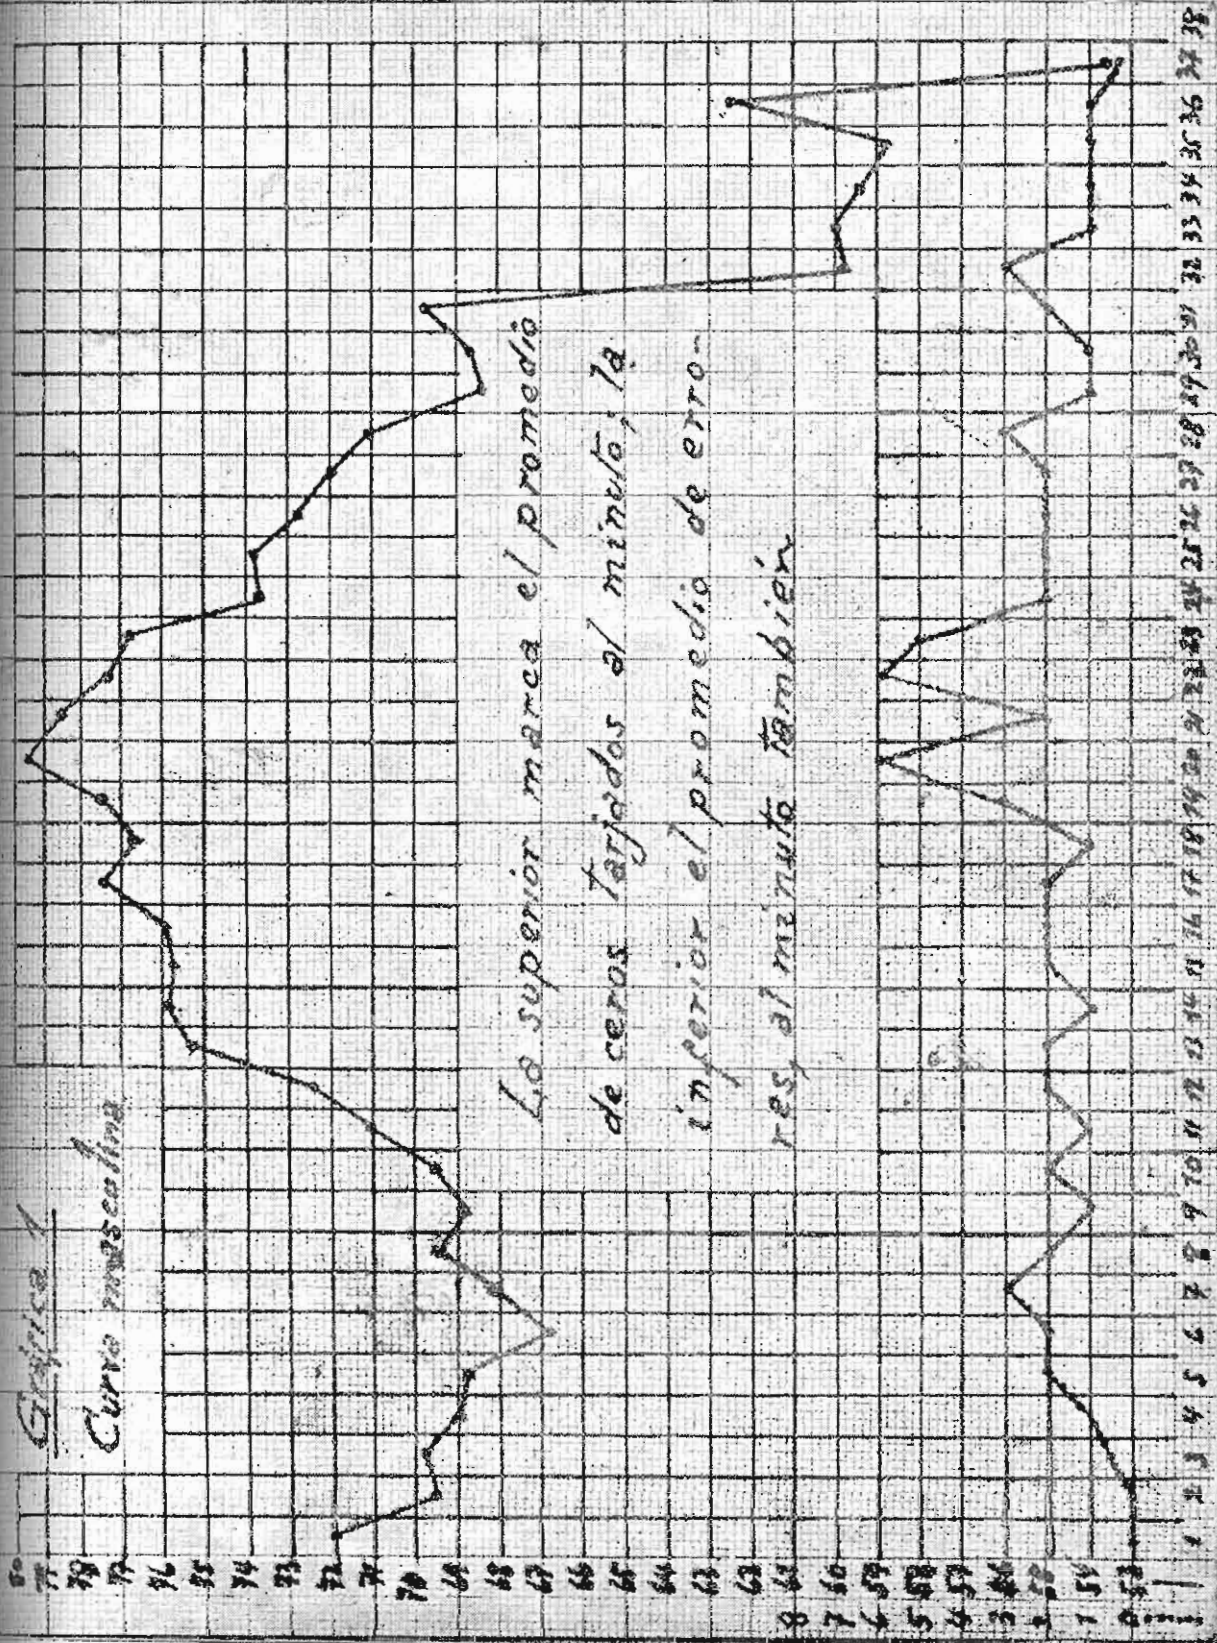 Gráfica 1
Curva masculina
La superior marca el promedio
de ceros tarjados al minuto; la
inferior el promedio de erro-
res, al minuto también
79
78
77
76
75
74
73
72
71
70
69
68
67
66
65
64
63
62
8 61
7 60
6 59
5 58
4 57
3 56
1 54
0 53
1 2 3 4 5 6 7 8 9 10 11 12 13 14 15 16 17 18 19 20 21 22 23 24 25 26 27 28 29 30 31 32 33 34 35 36 37 38